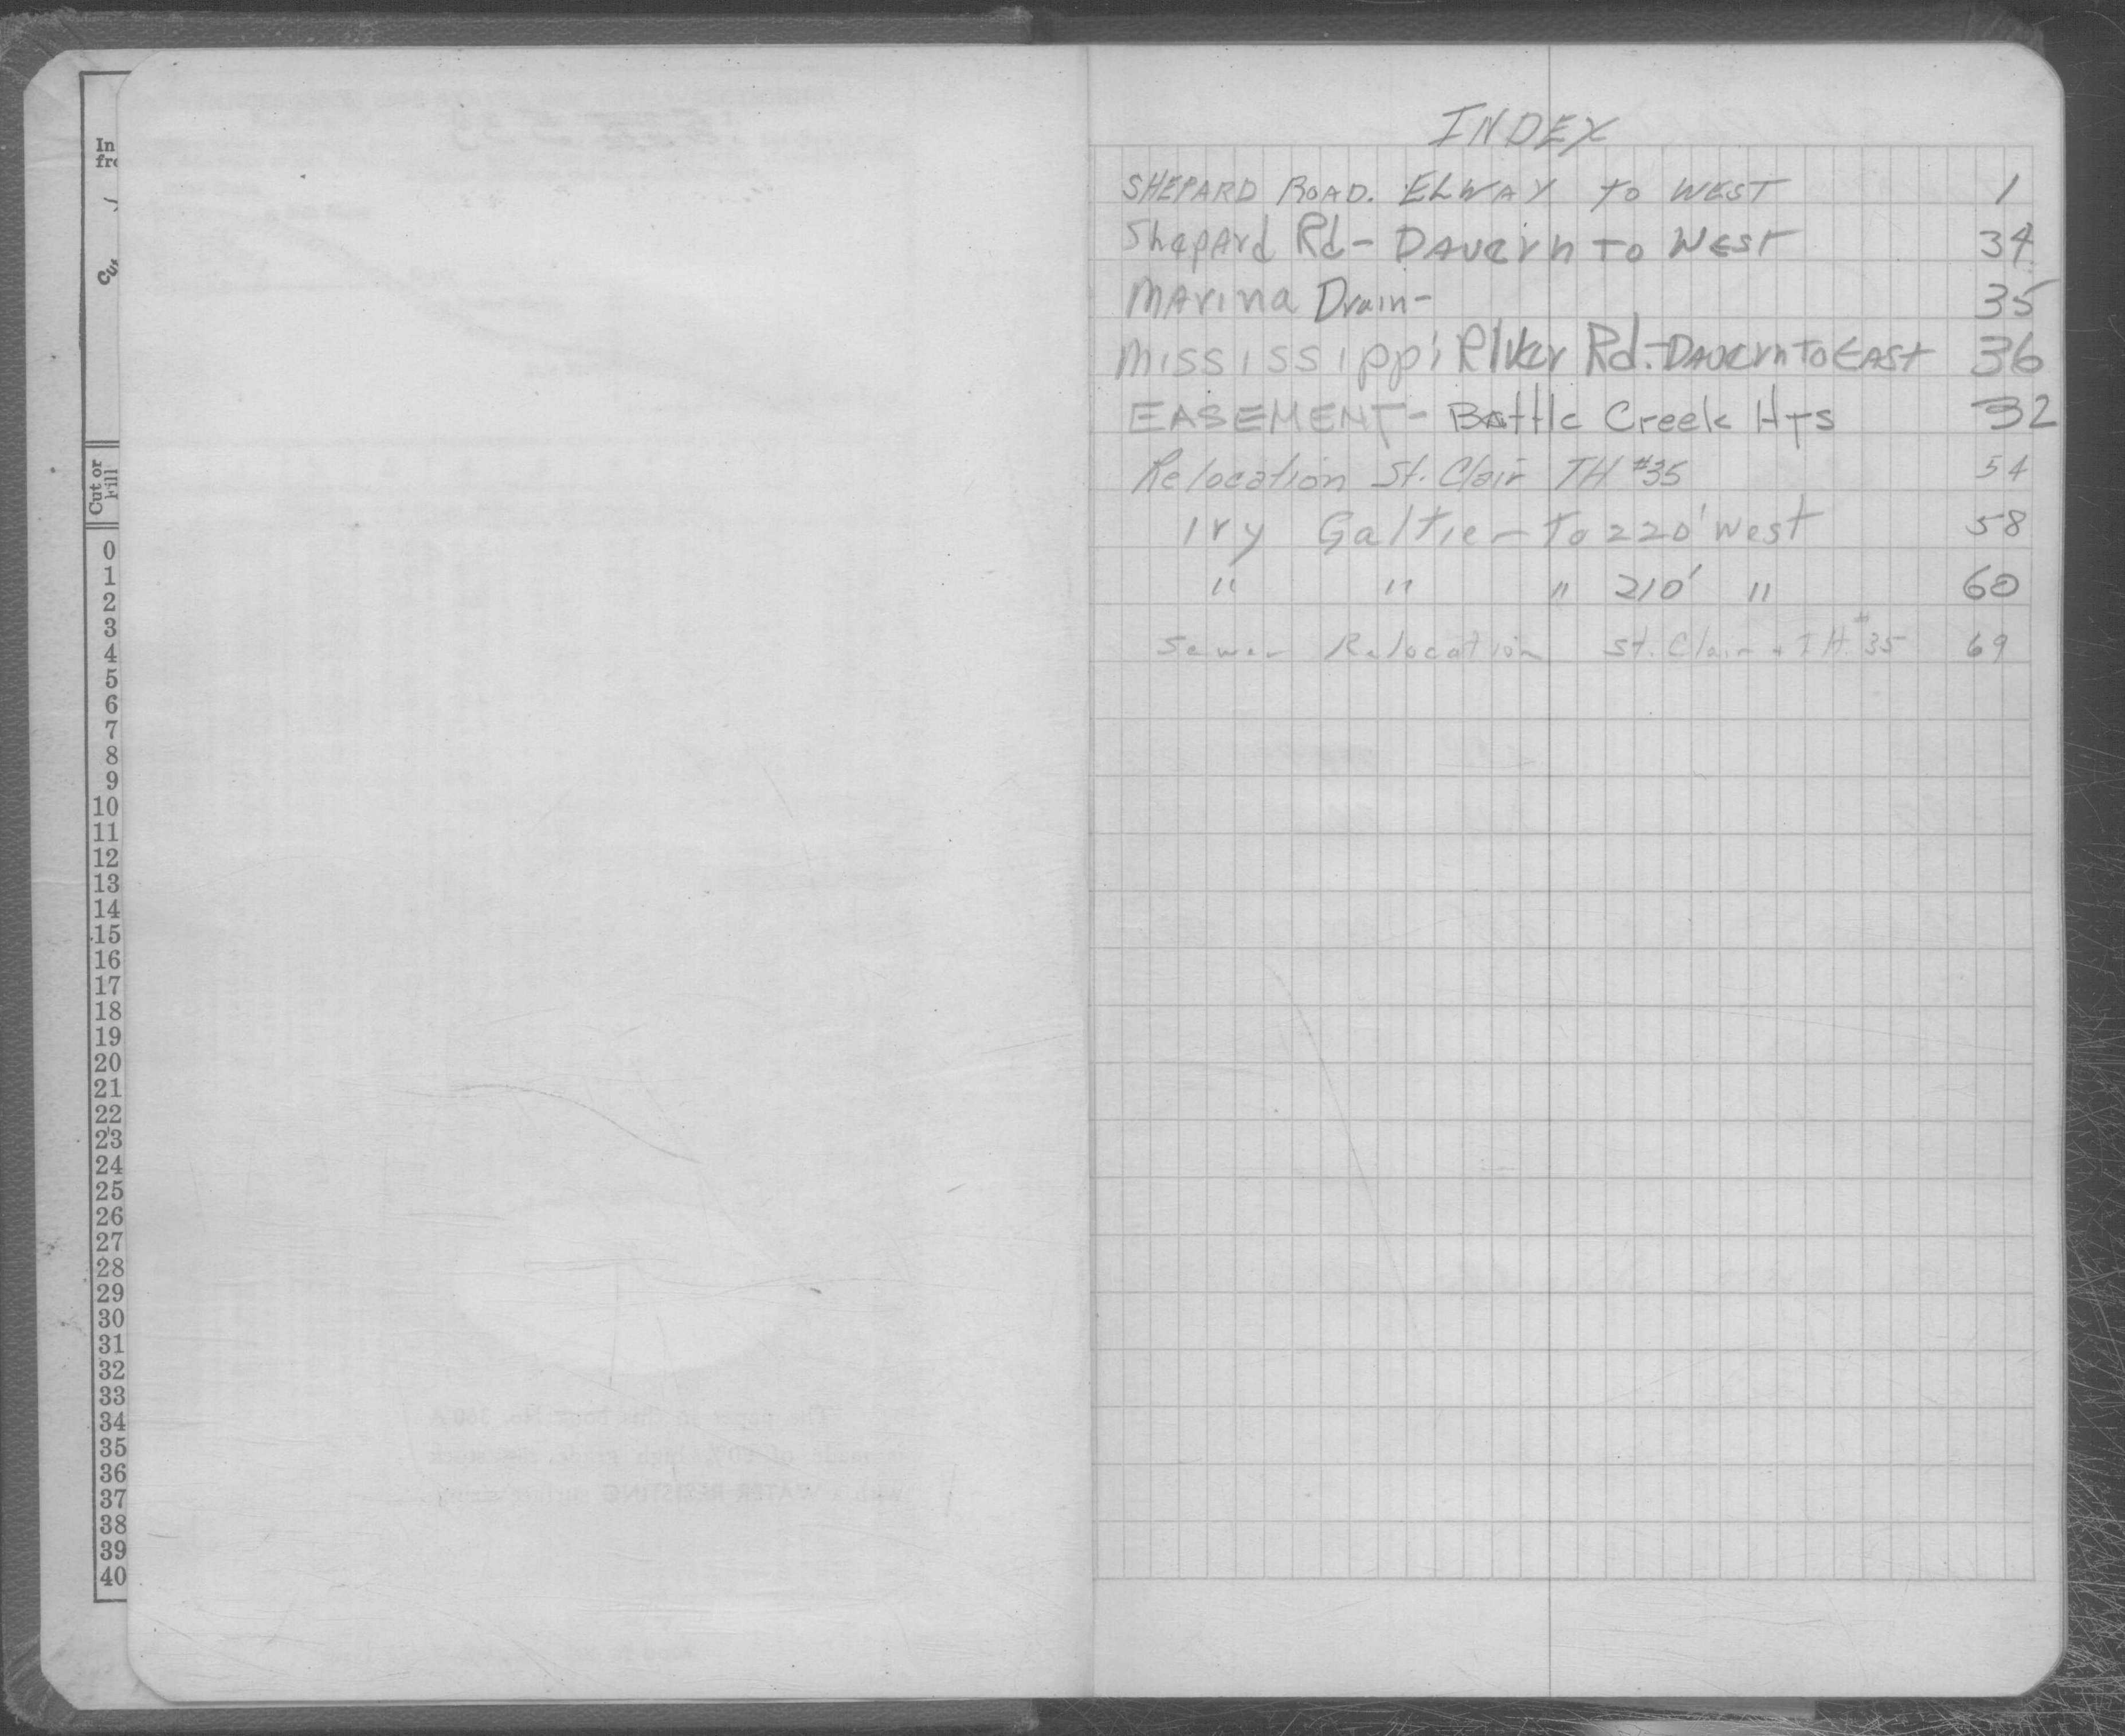 In
fro
Cut or
Fill
0
1
2
3
4
5
6
7
8
9
10
11
12
13
14
15
16
17
18
19
20
21
22
23
24
25
26
27
28
29
30
31
32
33
34
35
36
37
38
39
40
INDEX
SHEPARD ROAD. ELWAY TO WEST 1
Shepard Rd - Davern TO West 34
Marina Drain - 35
Mississippi River Rd. - Davern To East 36
EASEMENT - Battle Creek Hts 32
Relocation St. Clair TH #35 54
Ivy Galtier - To 220' West 58
" " " 210' " 60
Sewer Relocation St. Clair + T.H. #35 69